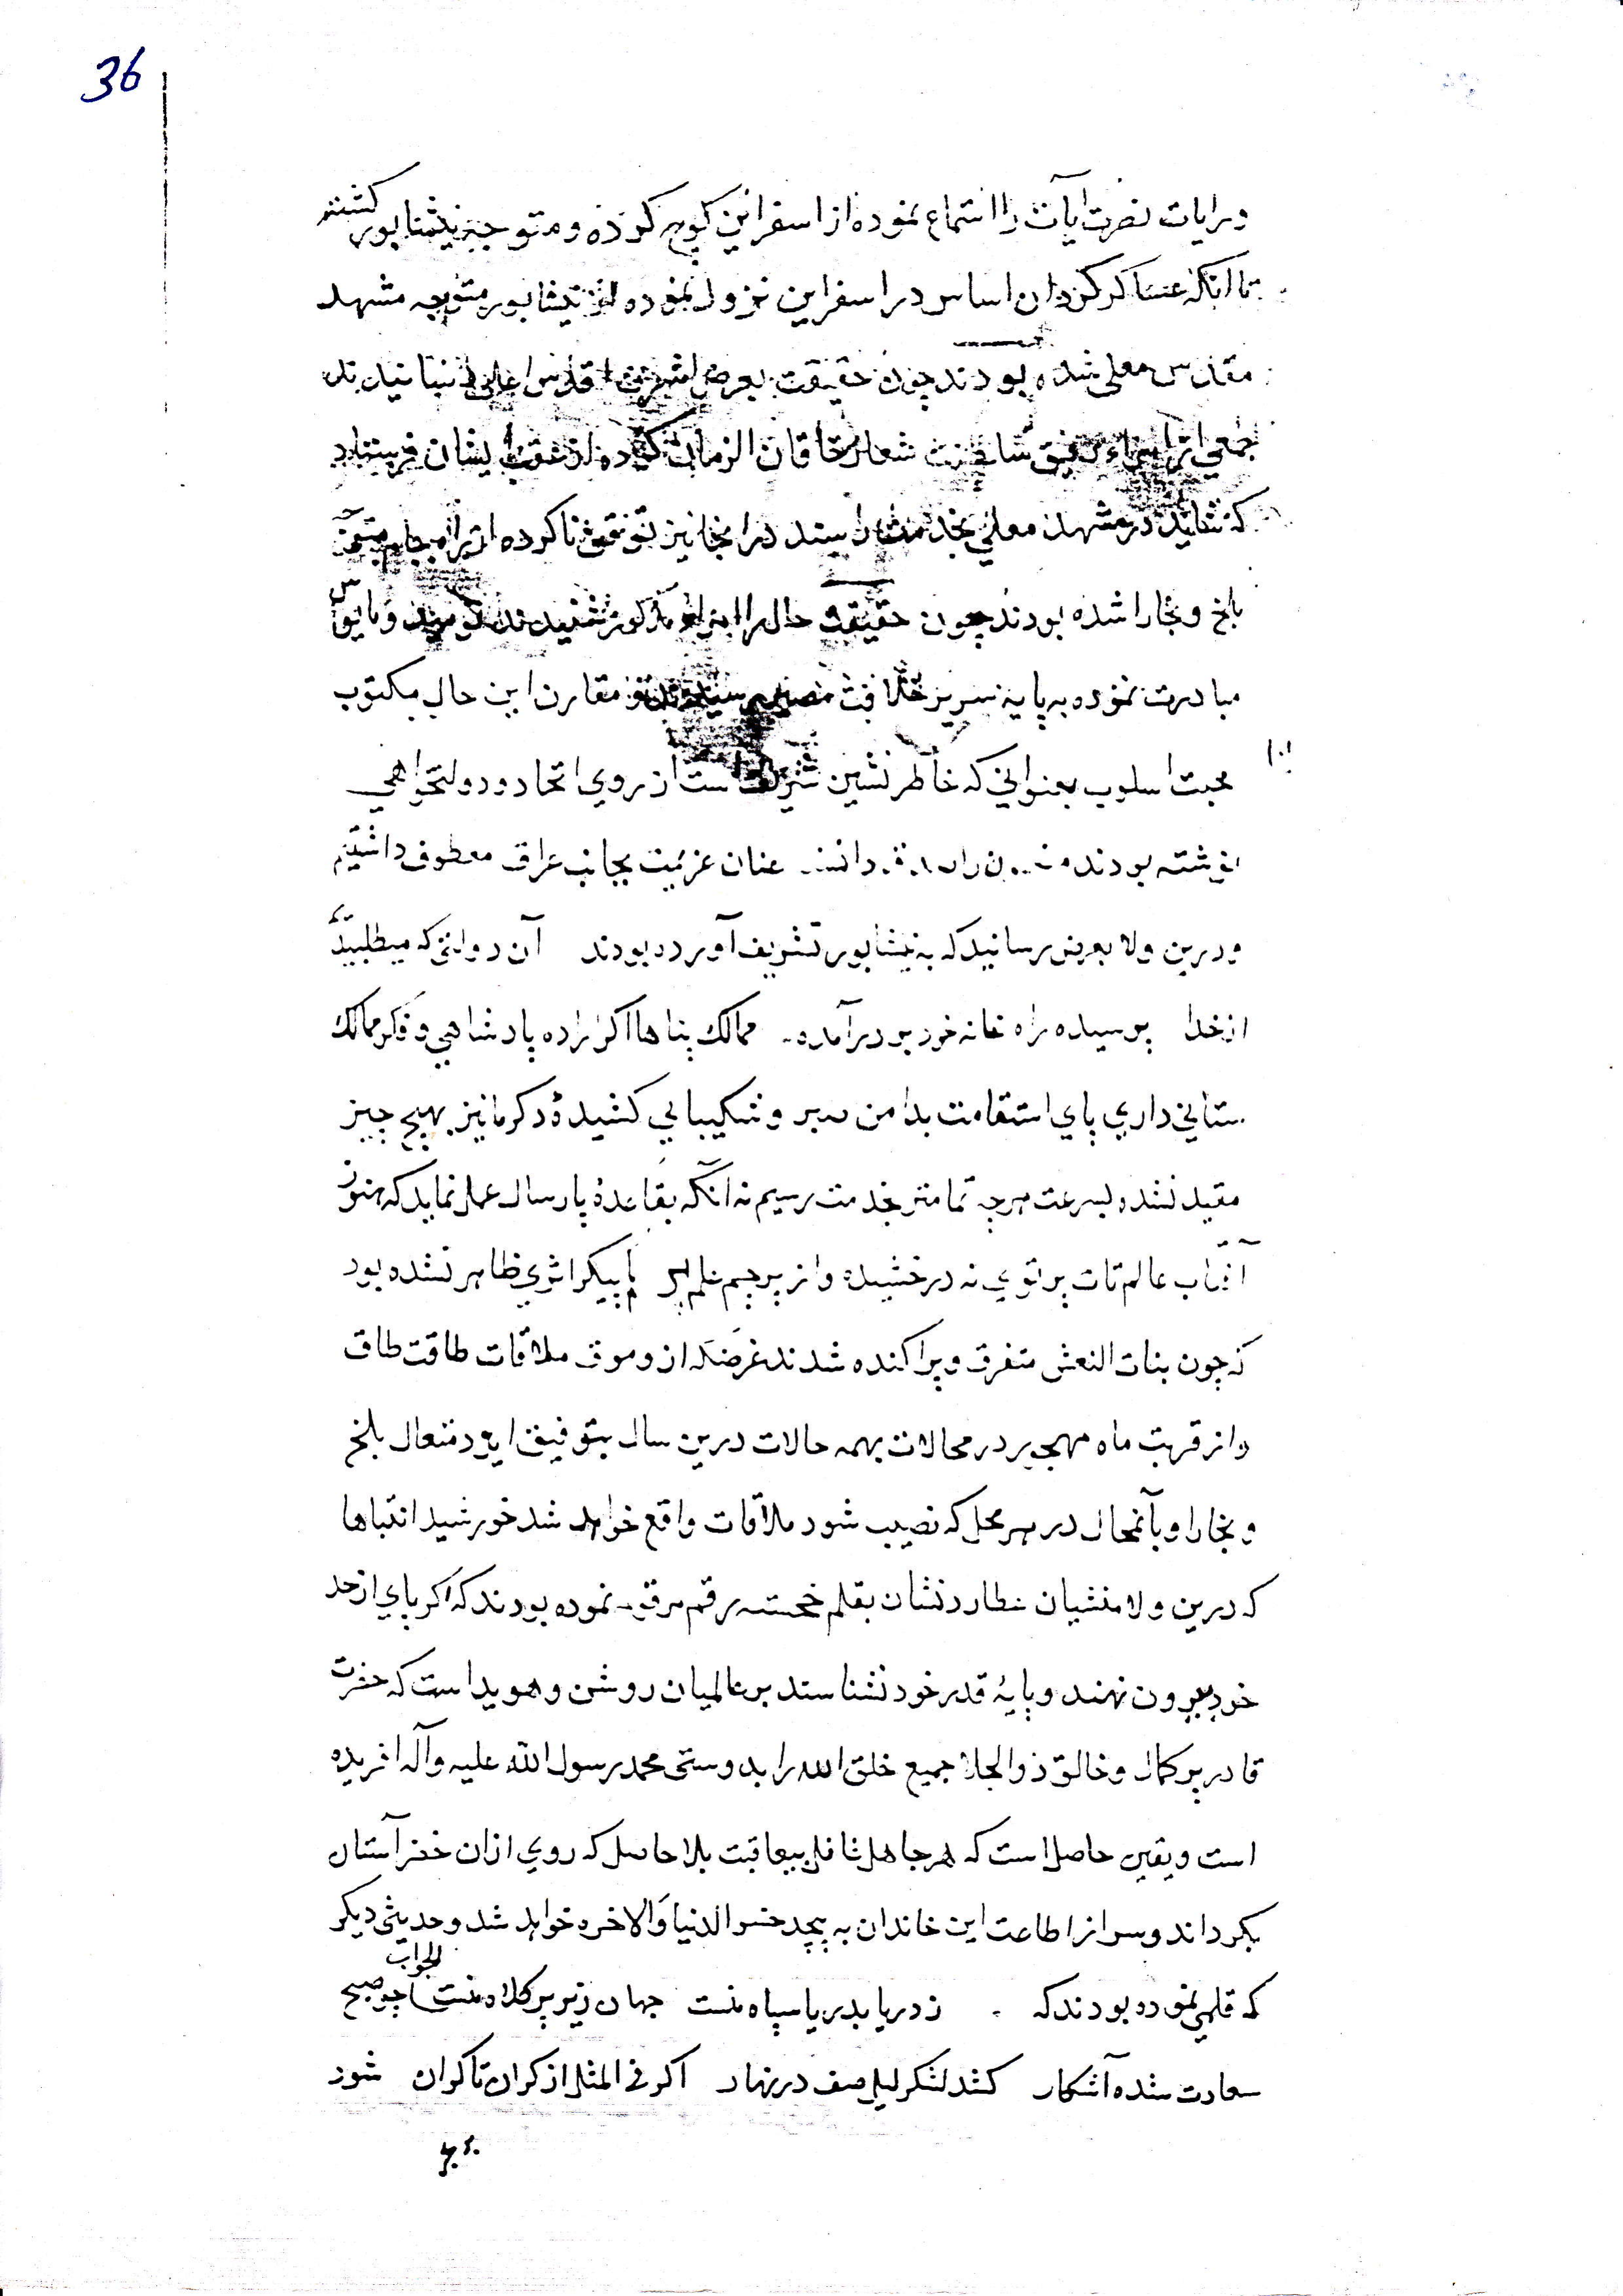 36
ورایات نصرت آیات را استماع نموده از اسفراین کوچ کرده و متوجه نیشابور کشتند
تا انکه عساکر کردان اساس در اسفراین نزول نموده از نیشابور متوجه مشهد
مقدس معلی شده بودند چون حقیقت بعرض اشرف اقدس اعلی
جمعی شعار خاقان الزمان کرده از عقب ایشان فرستاد
که شاید در مشهد معلی بخدمت رسند در انجا نیز توقف ناکرده از راه
بلخ و بخارا شده بودند چون حقیقت حال را شنیدند و مایوس
مبادرت نموده به پایه سریر خلافت مصیر مقارن این حال مکتوب
محبت اسلوب بعنوانی که خاطر نشین است از روی اتحاد و دولتخواهی
نوشته بودند عنان عزیمت بجانب عراق معطوف داشتیم
ودرین ولا بعرض رسانید که به نیشابور تشریف آورده بودند آن دولتی که میطلبیدیم
از خدا پرسیده راه خانه خود بر در آمده ممالک پناها اکر اراده پادشاهی و فکر ممالک
ستانی داری پای استقامت بدامن صبر و شکیبایی کشیده دکر مانیز بهیچ چیز
مقید نشده بسرعت هرچه تمامتر بخدمت رسیم نه انکه بقاعدهٔ پارسال عمل نماید که هنوز
آفتاب عالمتاب پرتوی نه درخشیده و از پرچم علم پیکر اثری ظاهر نشده بود
که چون بنات النعش متفرق و پراکنده شدند غرضکه از وموق ملاقات طاقت طاق
و از قربت ماه مهجور در محالات بهمه حالات درین سال بتوفیق ایزد متعال بلخ
و بخارا و بآنمحال در هر محل که نصیب شود ملاقات واقع خواهد شد خورشید انتباها
که درین ولا منشیان عطارد نشان بقلم خجسته رقم مرقوم نموده بودند که اکر پای از حد
خود بیرون نهند و پایهٔ قدر خود نشناسند بر عالمیان روشن و هویداست که حضرت
قادر پر کمال و خالق ذوالجلا جمیع خلق الله را بدوستی محمد رسول الله علیه وآله افریده
است و یقین حاصل است که هر جاهل غافل بیعاقبت بلا حاصل که روی ازان خضر آستان
بکرداند و سر از اطاعت این خاندان به پیچد خسر الدنیا والاخره خواهد شد و حدیثی دیکر
که قلمی نموده بودند که ز دریا بدریا سپاه منست جهان زیر پر کلاه منست الجواب چو صبح
سعادت شده آشکار کشد لشکر لیل صف در نهار اکر فی المثل از کران تا کران شود